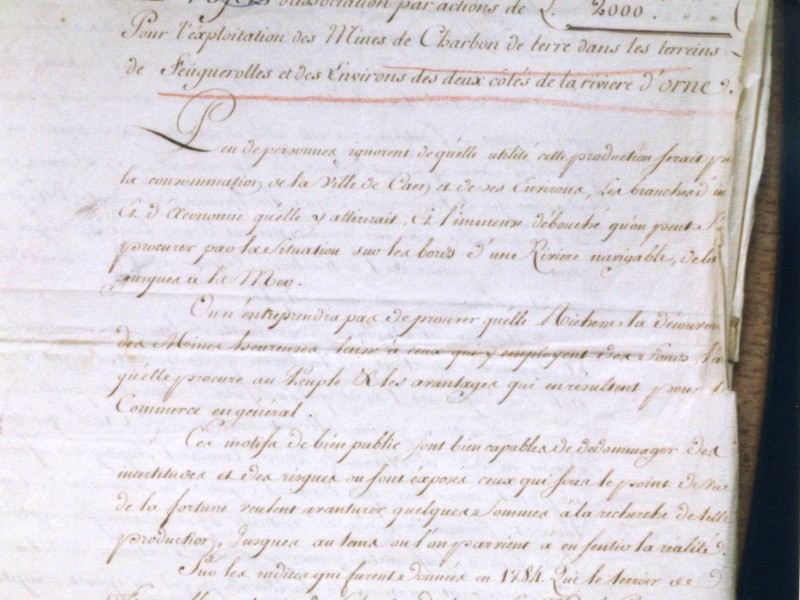 d'association par actions de L. 2000.
Pour l'exploitation des Mines de Charbon de terre dans les terreins
de Feuguerolles et des Environs des deux côtés de la riviere d'orne.
Peu de personnes ignorent de quelle utilité cette production serait p
la consommation de la Ville de Caen et de ses Environs, Les branches d'in
Et d'Œconomie quelle y attirerait, Et l'immense débouché qu'on peut s'
procurer par la Situation sur les bords d'une Riviere navigable, de la
jusques à la Mer.
On n'entreprendra pas de prouver quelle Richesse la découver
des Mines heureuses laisse à ceux qui y employent des fonds, la
qu'elle procure au Peuple & les avantages qui en résultent pour le
Commerce en général.
Ces motifs de bien public sont bien capables de dedommager des
incertitudes et des risques ou sont exposés ceux qui sous le point de vue
de la fortune veulent avanturer quelques Sommes a la recherche de telle
production, Jusques au tems ou l'on parvient à en sentir la réalité
Sur les indices qui furent donnés en 1784. Que le terroir de